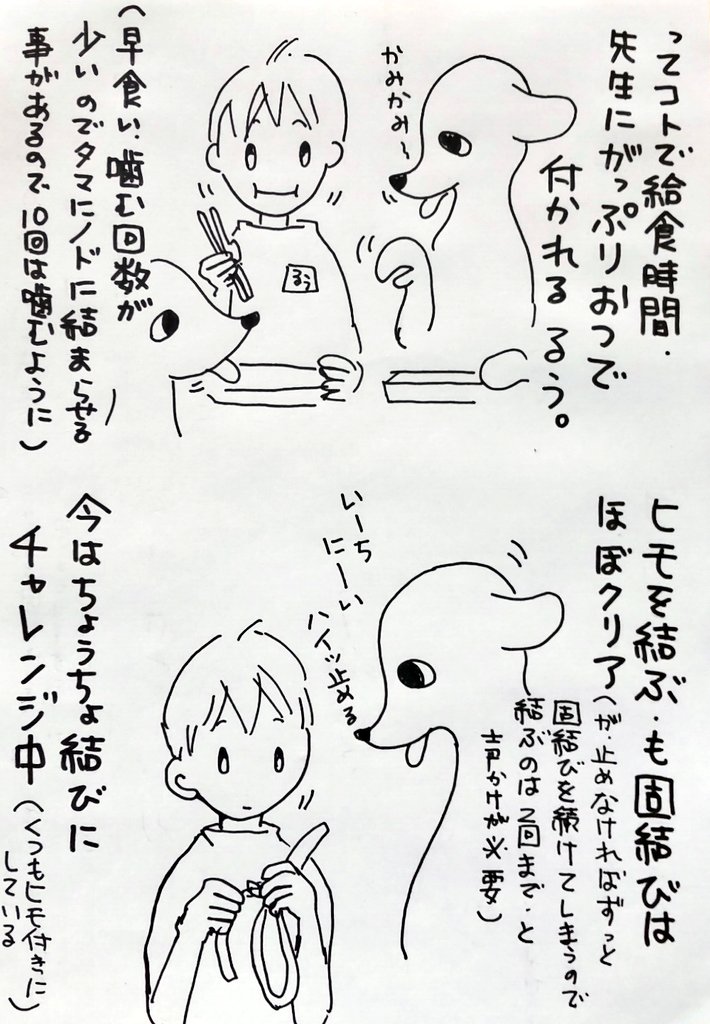 ってコトで給食時間・
先生にがっぷりおつで
付かれる るう。
かみかみ〜
るう
(早食い、噛む回数が
少いのでタマにノドに結まらせる
事があるので10回は噛むように)
ヒモを結ぶ・も固結びは
ほぼクリア(が、止めなければずっと
固結びを続けてしまうので
結ぶのは2回まで・と
声かけが必要)
いーち
にーい
ハイッ止める
今はちょうちょ結びに
チャレンジ中(くつもヒモ付きに
している)